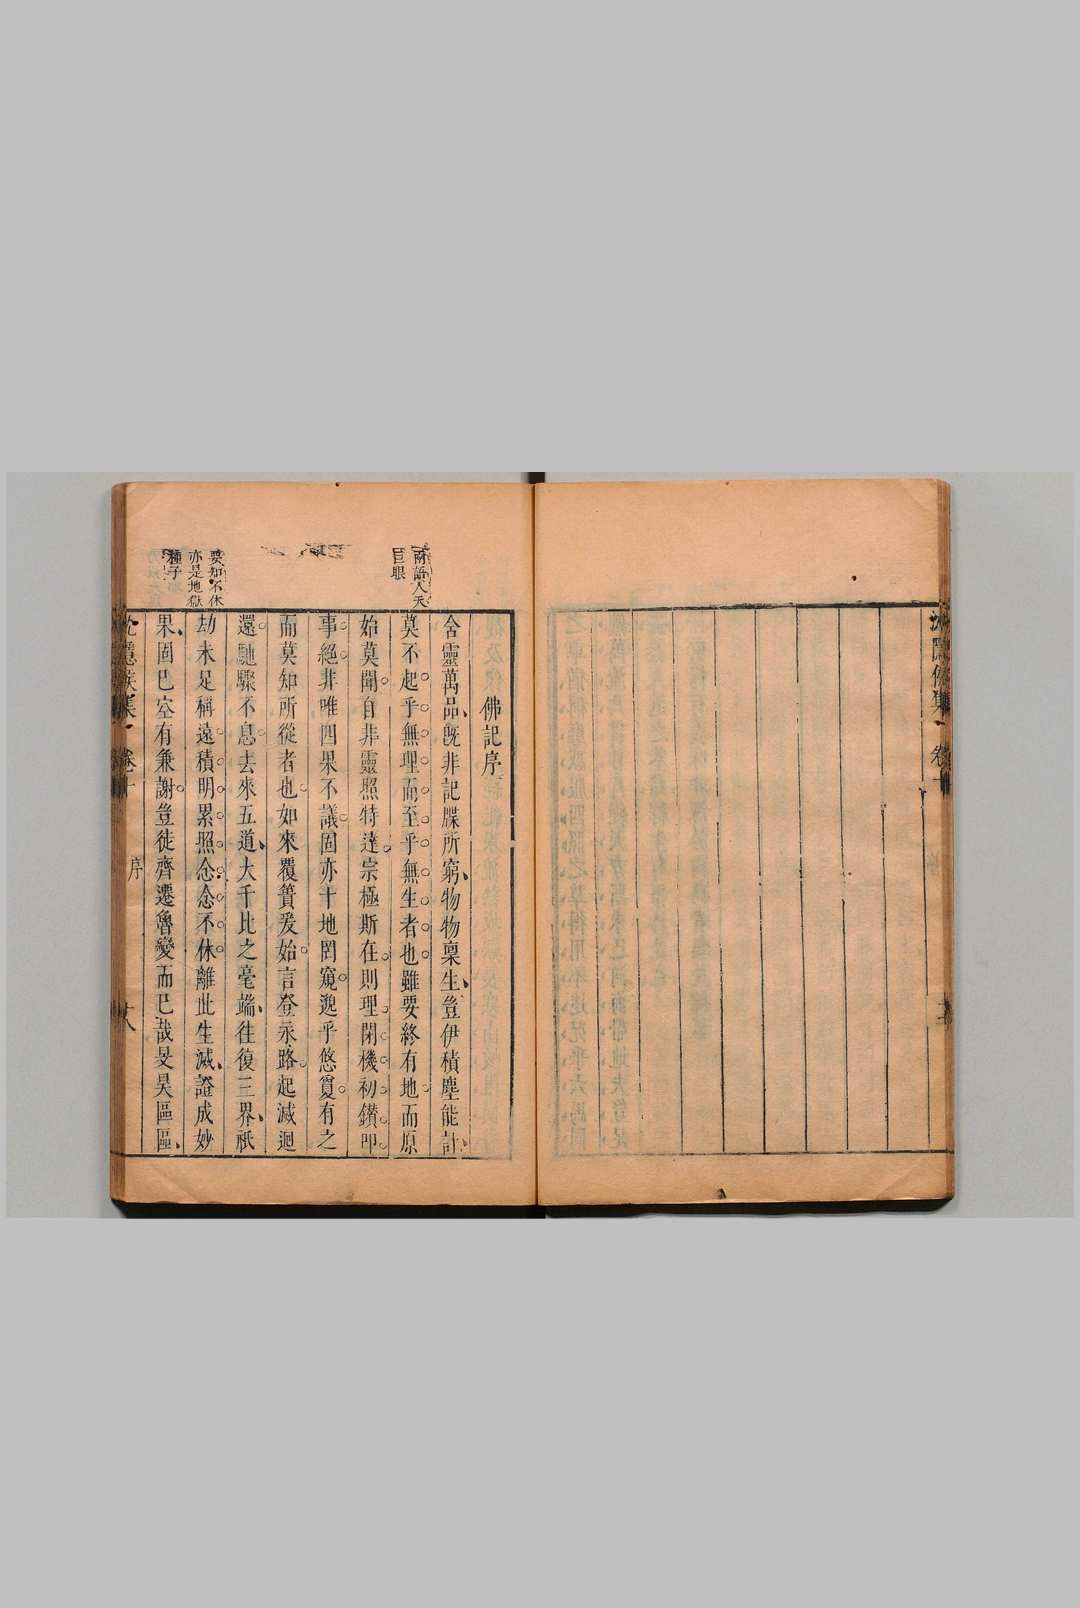 佛記序
含靈萬品既非記牒所窮物物稟生豈伊積塵能計
莫不起乎無理而至乎無生者也雖要終有地而原
始莫聞自非靈照特達宗極斯在則理閉機初鑽卽
事絕非唯四果不議固亦十地罔窺邈乎悠夐有之
而莫知所從者也如來覆簣爰始言登永路起滅迴
還馳驟不息去來五道大千比之毫端往復三界祇
劫未足稱遠積明累照念念不休離此生滅證成妙
果固已空有兼謝豈徒齊遷魯變而已哉旻昊區區
兩語人天
巨眼
要知不休
亦是地獄
種子
沈隱侯集
卷十
序